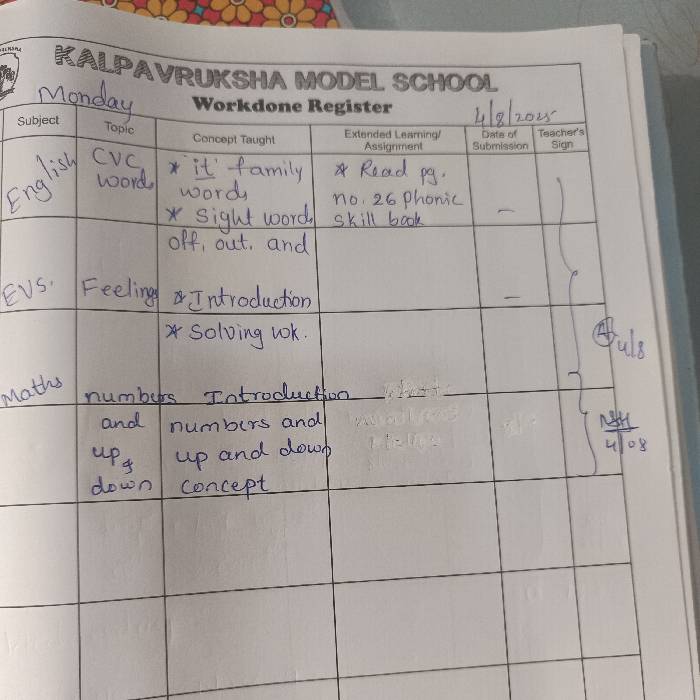 KALPAVRUKSHA MODEL SCHOOL
Monday Workdone Register 4/8/2025
Subject Topic Concept Taught Extended Learning/ Assignment Date of Submission Teacher's Sign
English CVC words * "it" family words * Read pg. no. 26 Phonic skill book –
* Sight words off, out, and
EVS. Feelings * Introduction –
* Solving wk.
Maths numbers and up & down Introduction numbers and up and down concept
4/8
4/08